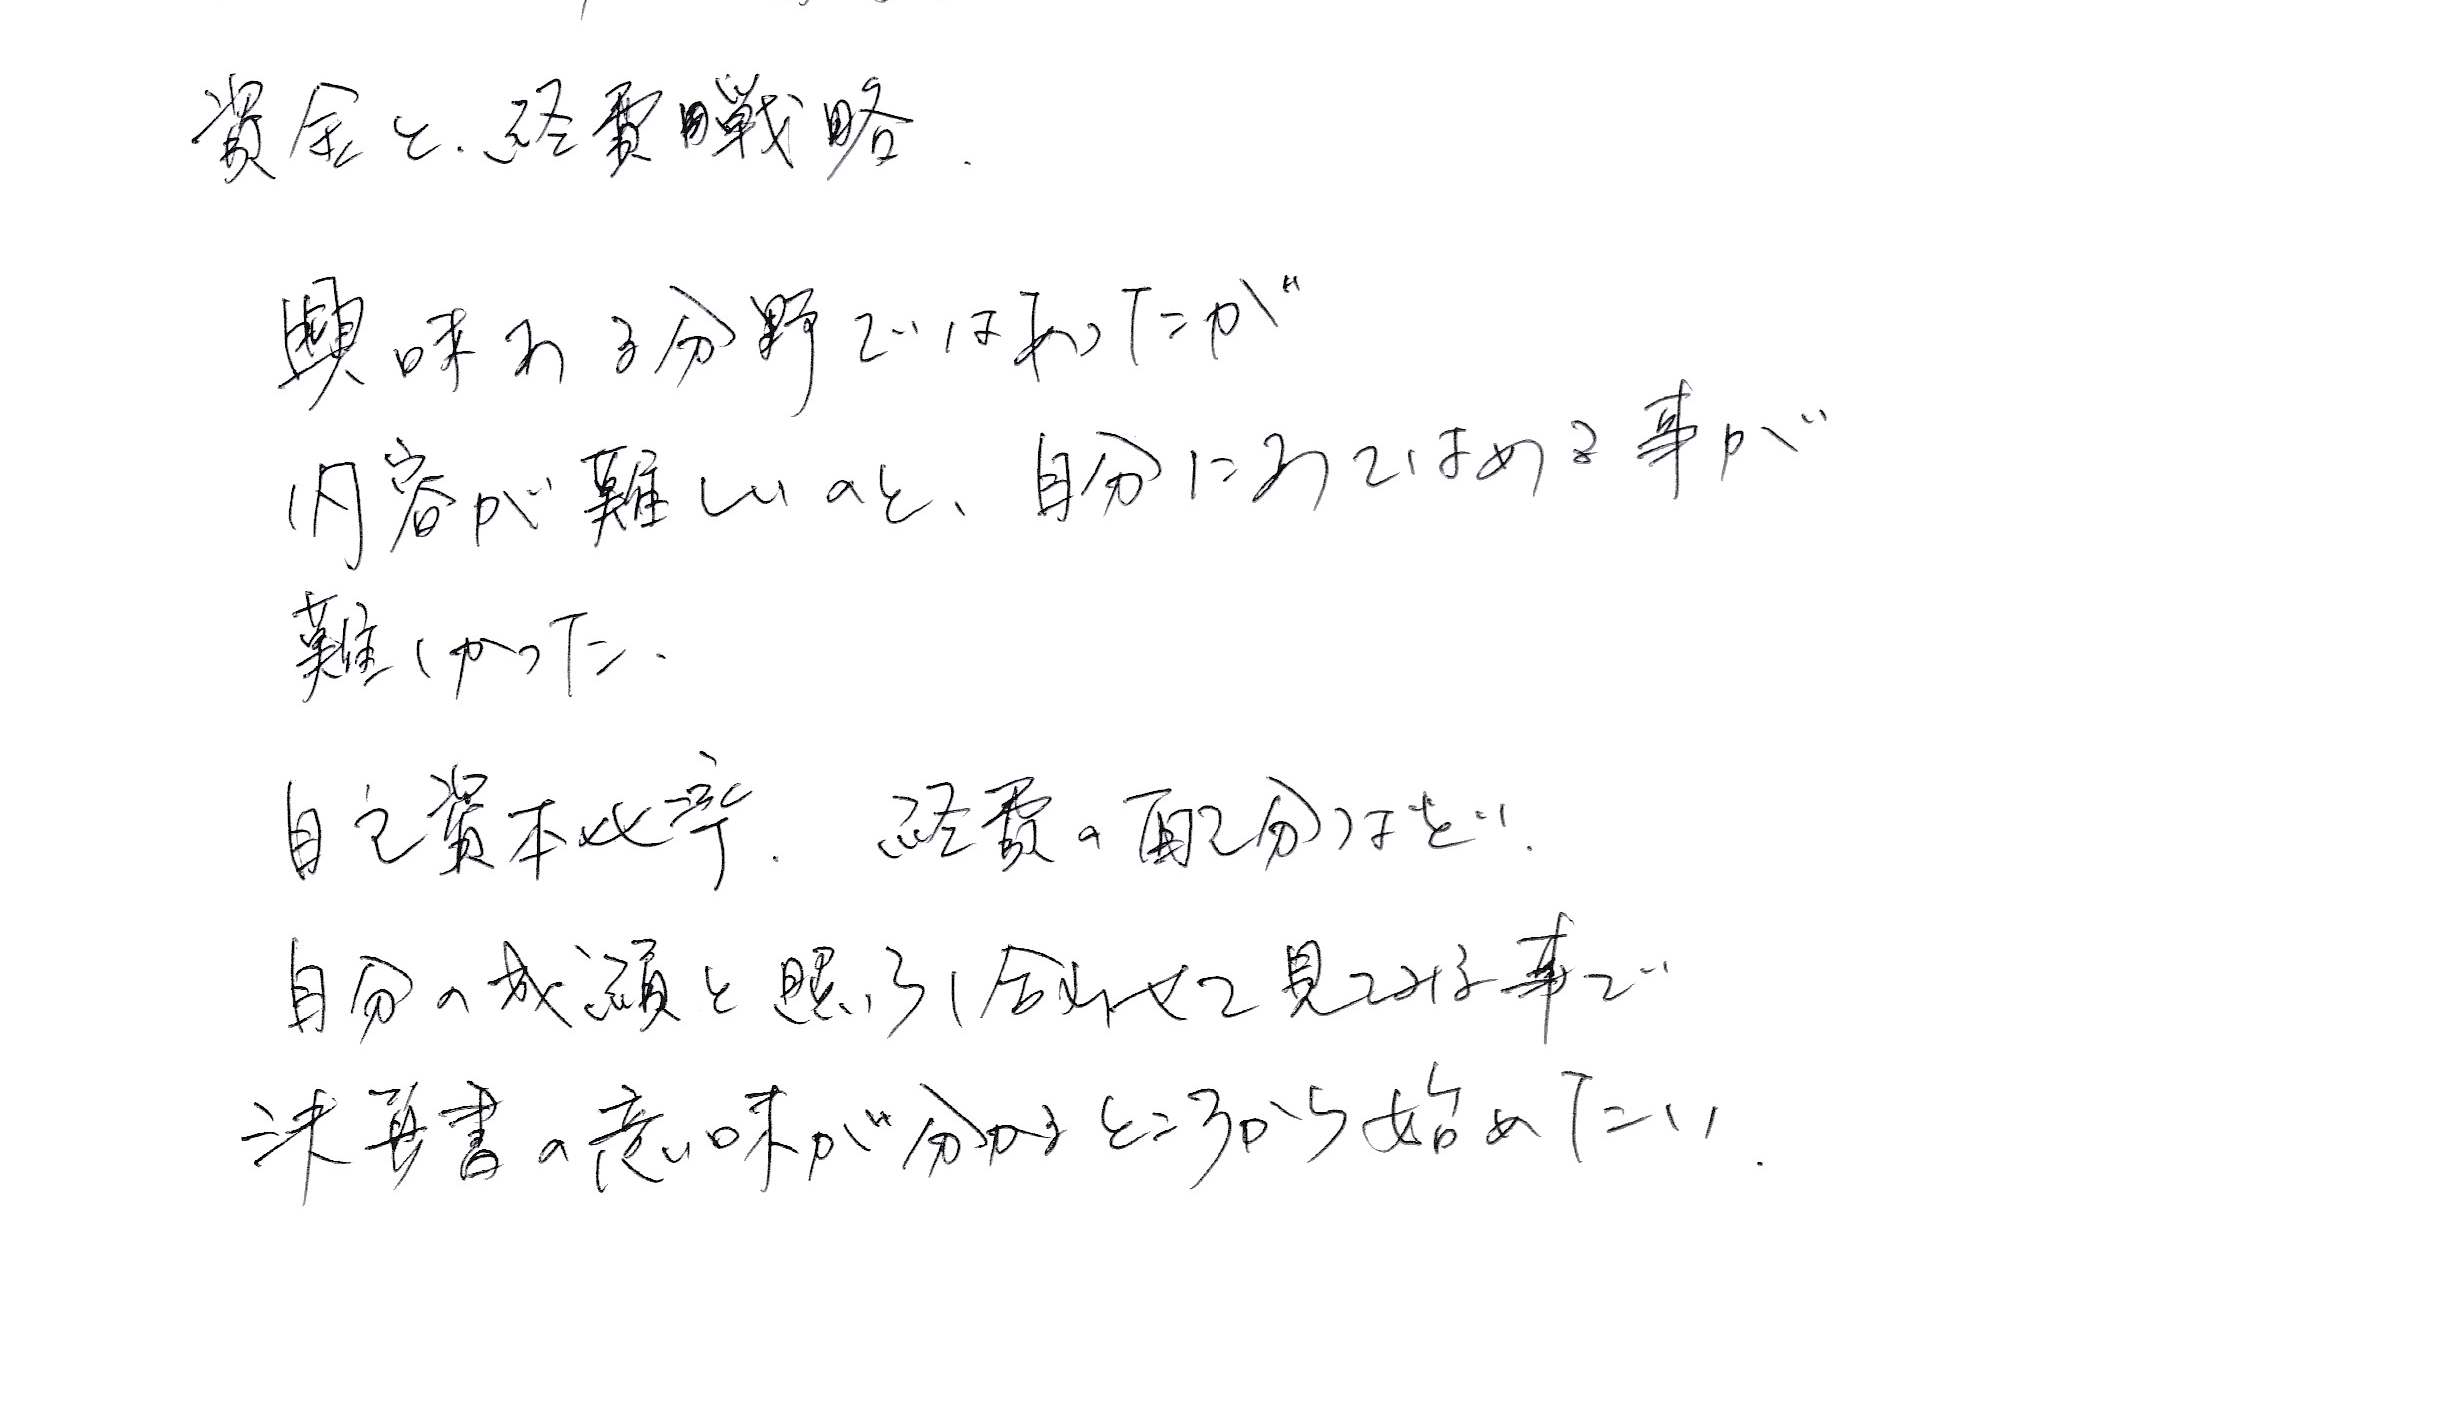 資金と、経費戦略.
興味ある分野ではあったが
内容が難しいのと、自分にあてはめる事が
難しかった.
自己資本比率. 経費の配分など.
自分の成績と照らし合わせて見てみる事で
決算書の意味が分かるところから始めたい.